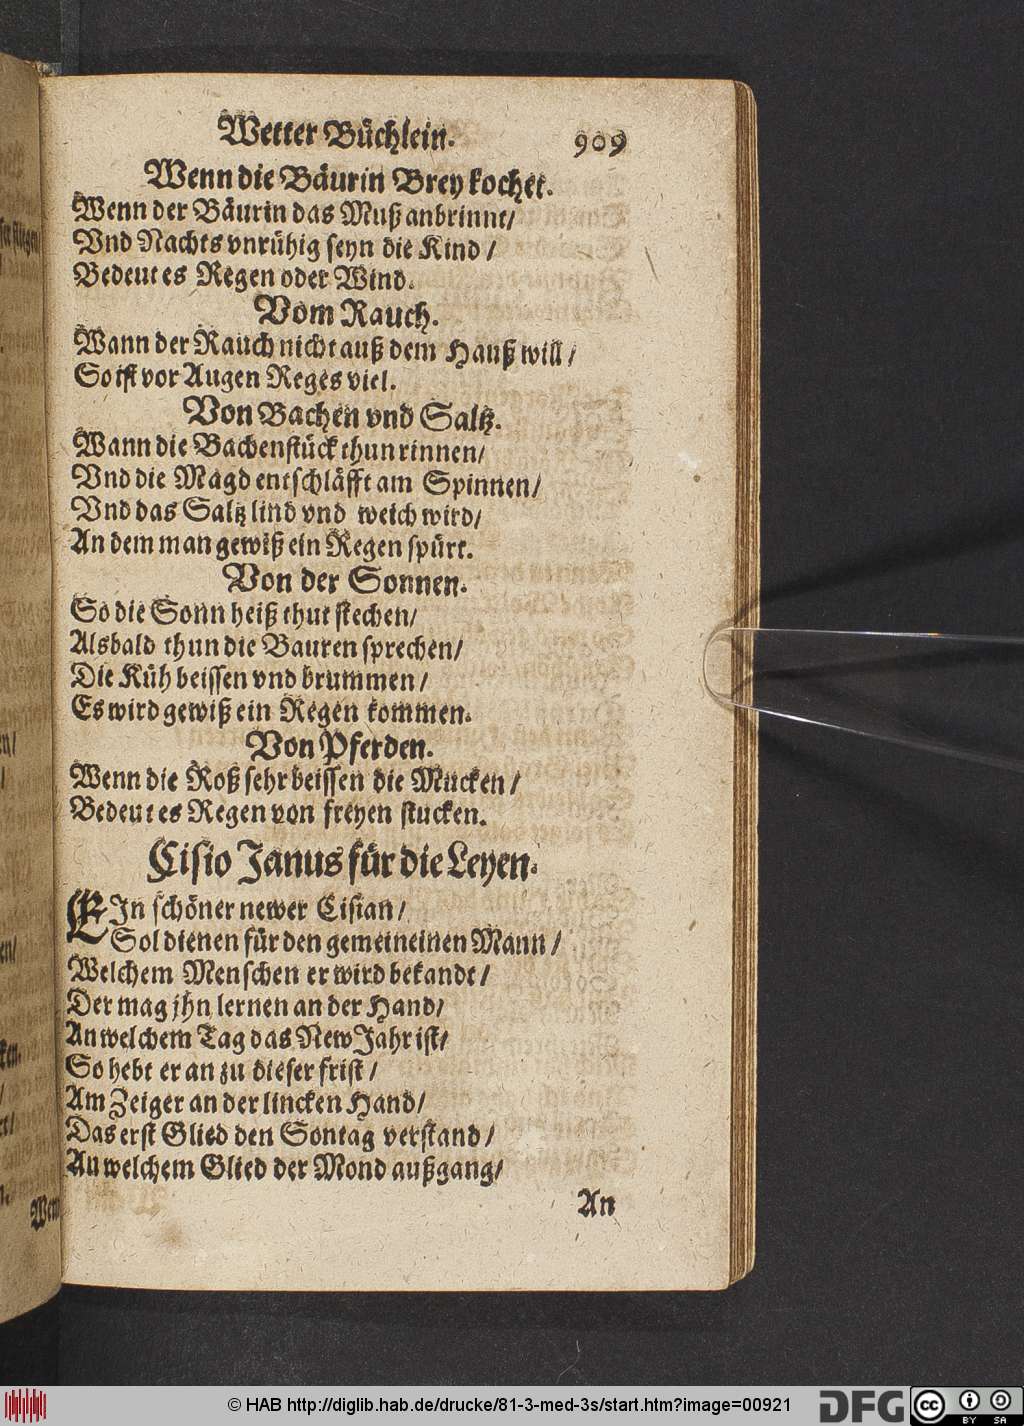 Wetter Büchlein. 909
Wenn die Bäurin Brey kochet.
Wenn der Bäurin das Muß anbrinnt/
Vnd Nachts vnrühig seyn die Kind/
Bedeut es Regen oder Wind.
Vom Rauch.
Wann der Rauch nicht auß dem Hauß will/
So ist vor Augen Reges viel.
Von Bachen vnd Saltz.
Wann die Bachenstück thun rinnen/
Vnd die Magd entschläfft am Spinnen/
Vnd das Saltz lind vnd weich wird/
An dem man gewiß ein Regen spürt.
Von der Sonnen.
So die Sonn heiß thut stechen/
Alsbald thun die Bauren sprechen/
Die Küh beissen vnd brummen/
Es wird gewiß ein Regen kommen.
Von Pferden.
Wenn die Roß sehr beissen die Mucken/
Bedeut es Regen von freyen stucken.
Cisio Janus für die Leyen.
EIn schöner newer Cisian/
Sol dienen für den gemeineinen Mann/
Welchem Menschen er wird bekandt/
Der mag jhn lernen an der Hand/
An welchem Tag das New Jahr ist/
So hebt er an zu dieser frist/
Am Zeiger an der lincken Hand/
Das erst Glied den Sontag verstand/
An welchem Glied der Mond außgang/
An
© HAB http://diglib.hab.de/drucke/81-3-med-3s/start.htm?image=00921
DFG
cc BY SA